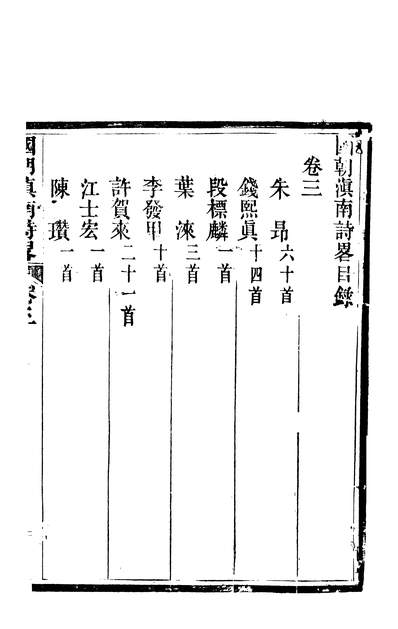 國朝滇南詩畧目錄
卷三
朱昂六十首
錢熙眞十四首
段標麟一首
葉涞三首
李發甲十首
許賀來二十一首
江士宏一首
陳瓚一首
國朝滇南詩畧 卷三